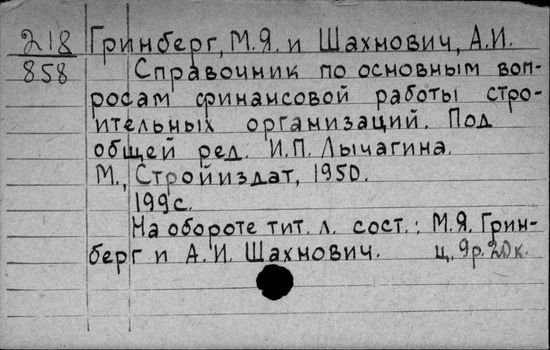 218 Гринберг, М.Я. и Шахнович, А.И.
858 Справочник по основным воп-
росам финансовой работы стро-
ительных организаций. Под
общей ред. И.П. Лычагина.
М., Стройиздат, 1950.
199с.
На обороте тит. л. сост.: М.Я. Грин-
берг и А.И. Шахнович. ц. 9р. 20к.